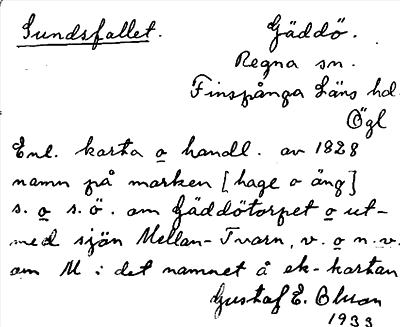 Sundsfallet. Gäddö.
Regna sn.
Finspånga Läns hd.
Ögl
Enl. karta o handl. av 1828
namn på marken [hage o äng]
s. o s.ö. om Gäddötorpet o ut-
med sjön Mellan-Tvarn, v. o n.v.
om M i det namnet å ek-kartan
Gustaf E. Olsson
1933